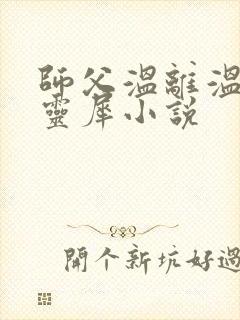 師父溫離溫
靈犀小說
開个新坑好過